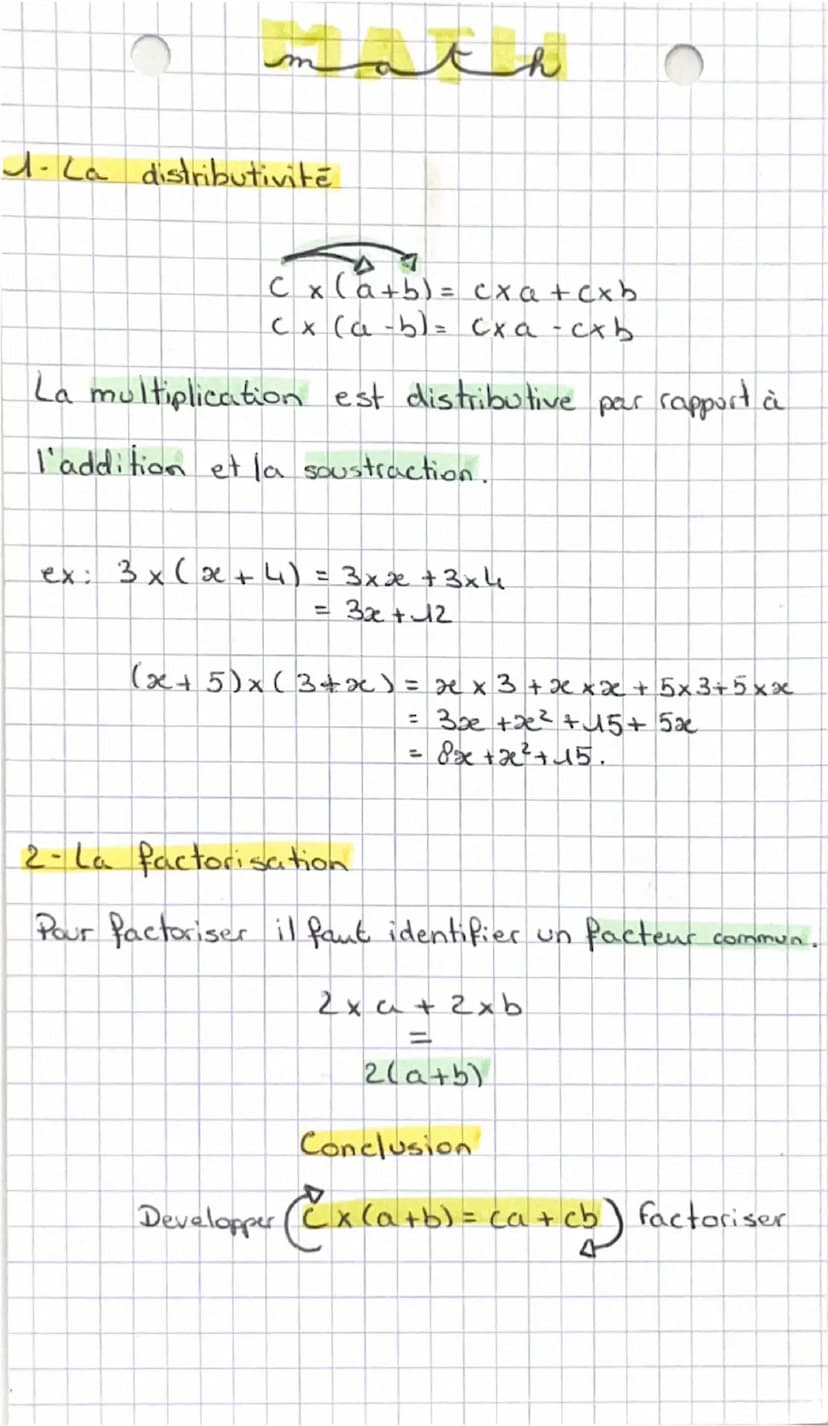 MATH
math
1- La distributivité
c x (a+b) = cxa + cxb
c x (a -b) = cxa - cxb
La multiplication est distributive par rapport à
l'addition et la soustraction.
ex: 3 x (x + 4) = 3xx + 3x4
= 3x + 12
(x + 5) x (3 + x) = x x 3 + x x x + 5x3 + 5xx
= 3x + x² + 15 + 5x
= 8x + x² + 15.
2- La factorisation
Pour factoriser il faut identifier un facteur commun.
2 x a + 2 x b
=
2(a+b)
Conclusion
Developper (c x (a+b) = ca + cb) factoriser